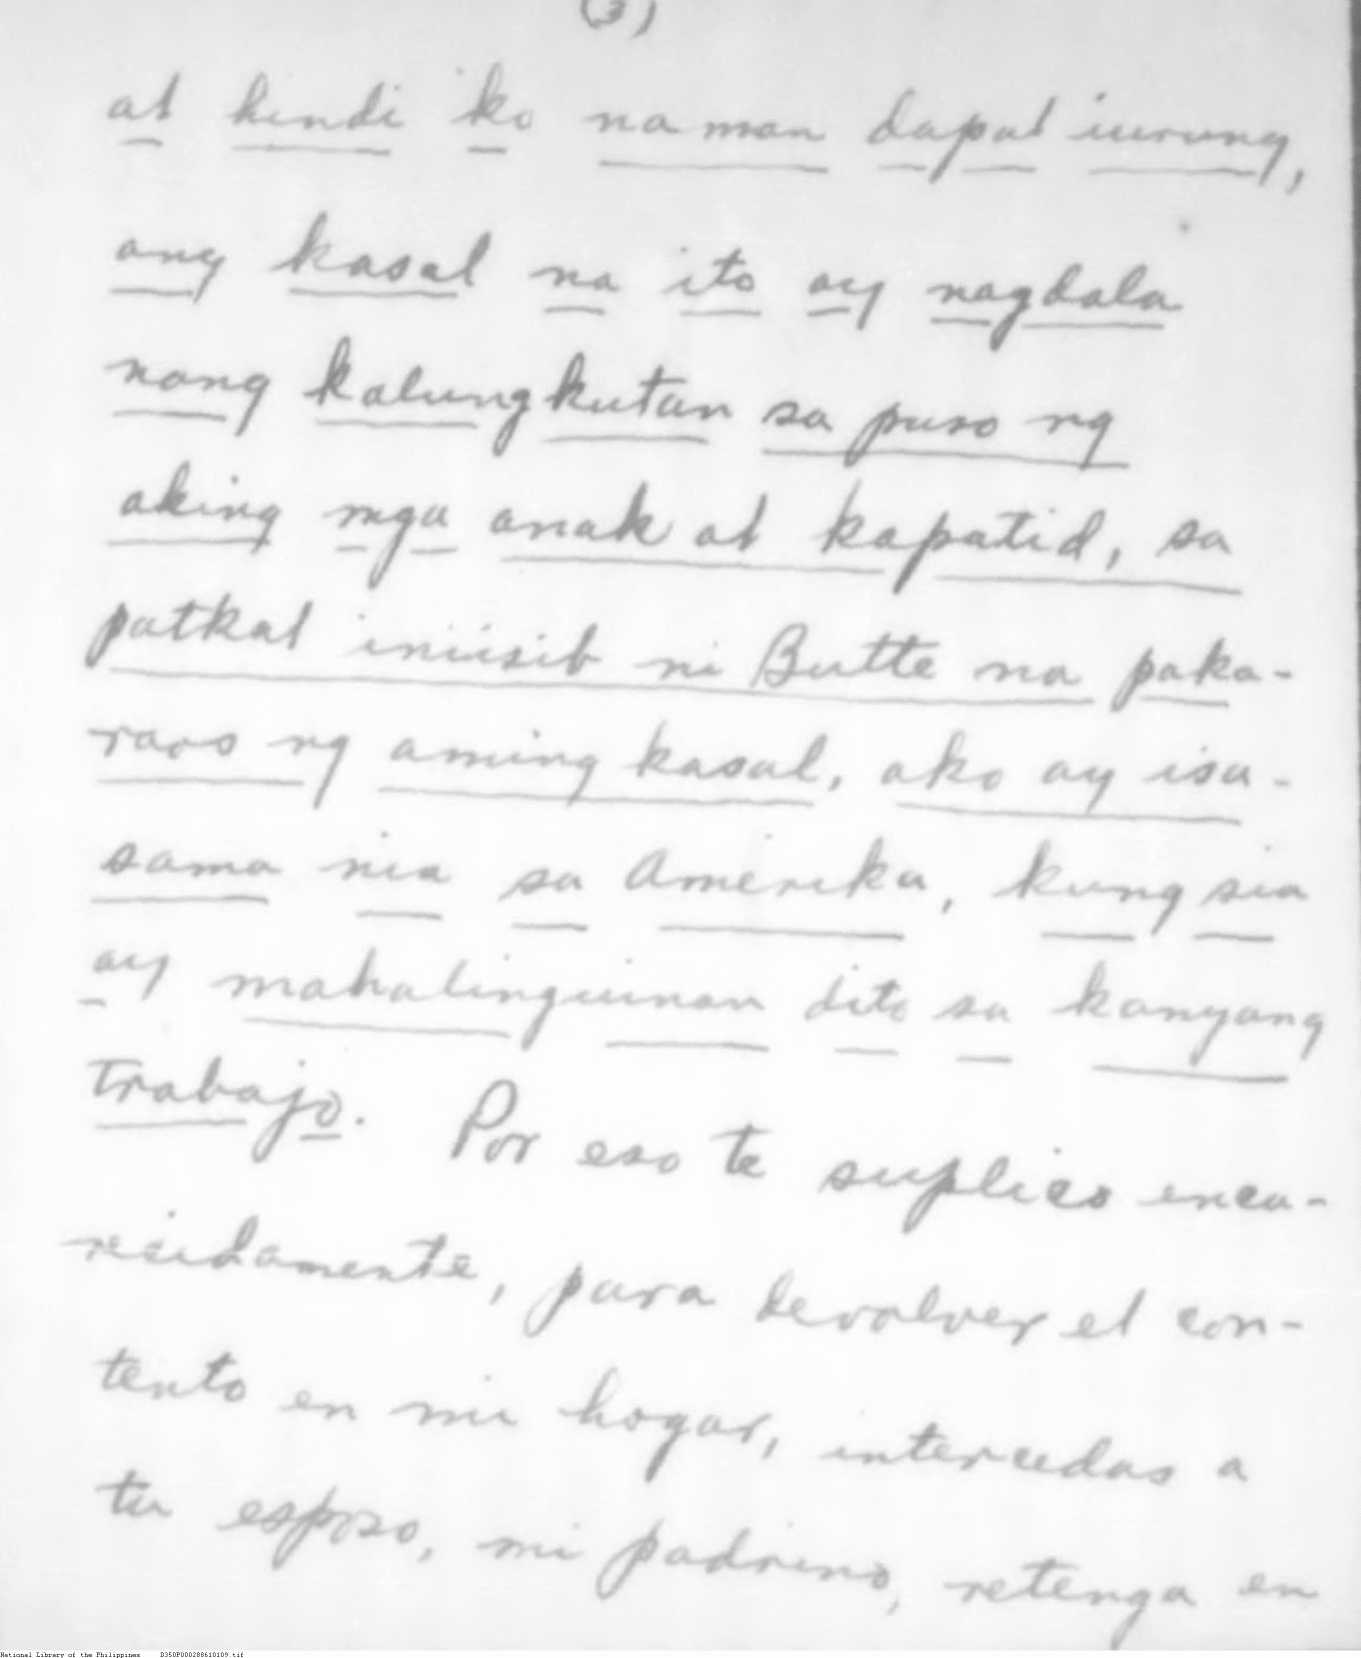 (3)
at hindi ko naman dapat iurung,
ang kasal na ito ay nagdala
nang kalungkutan sa puso ng
aking mga anak at kapatid, sa
patkat iniisib ni Butte na paka-
raos ng aming kasal, ako ay isa-
sama nia sa Amerika, kung sia
ay mahalinguinan dito sa kanyang
trabajo. Por eso te suplico enca-
recidamente, para devolver el con-
tento en mi hogar, intercedas a
tu esposo, mi padrino, retenga en
National Library of the Philippines D350P000288610109.tif